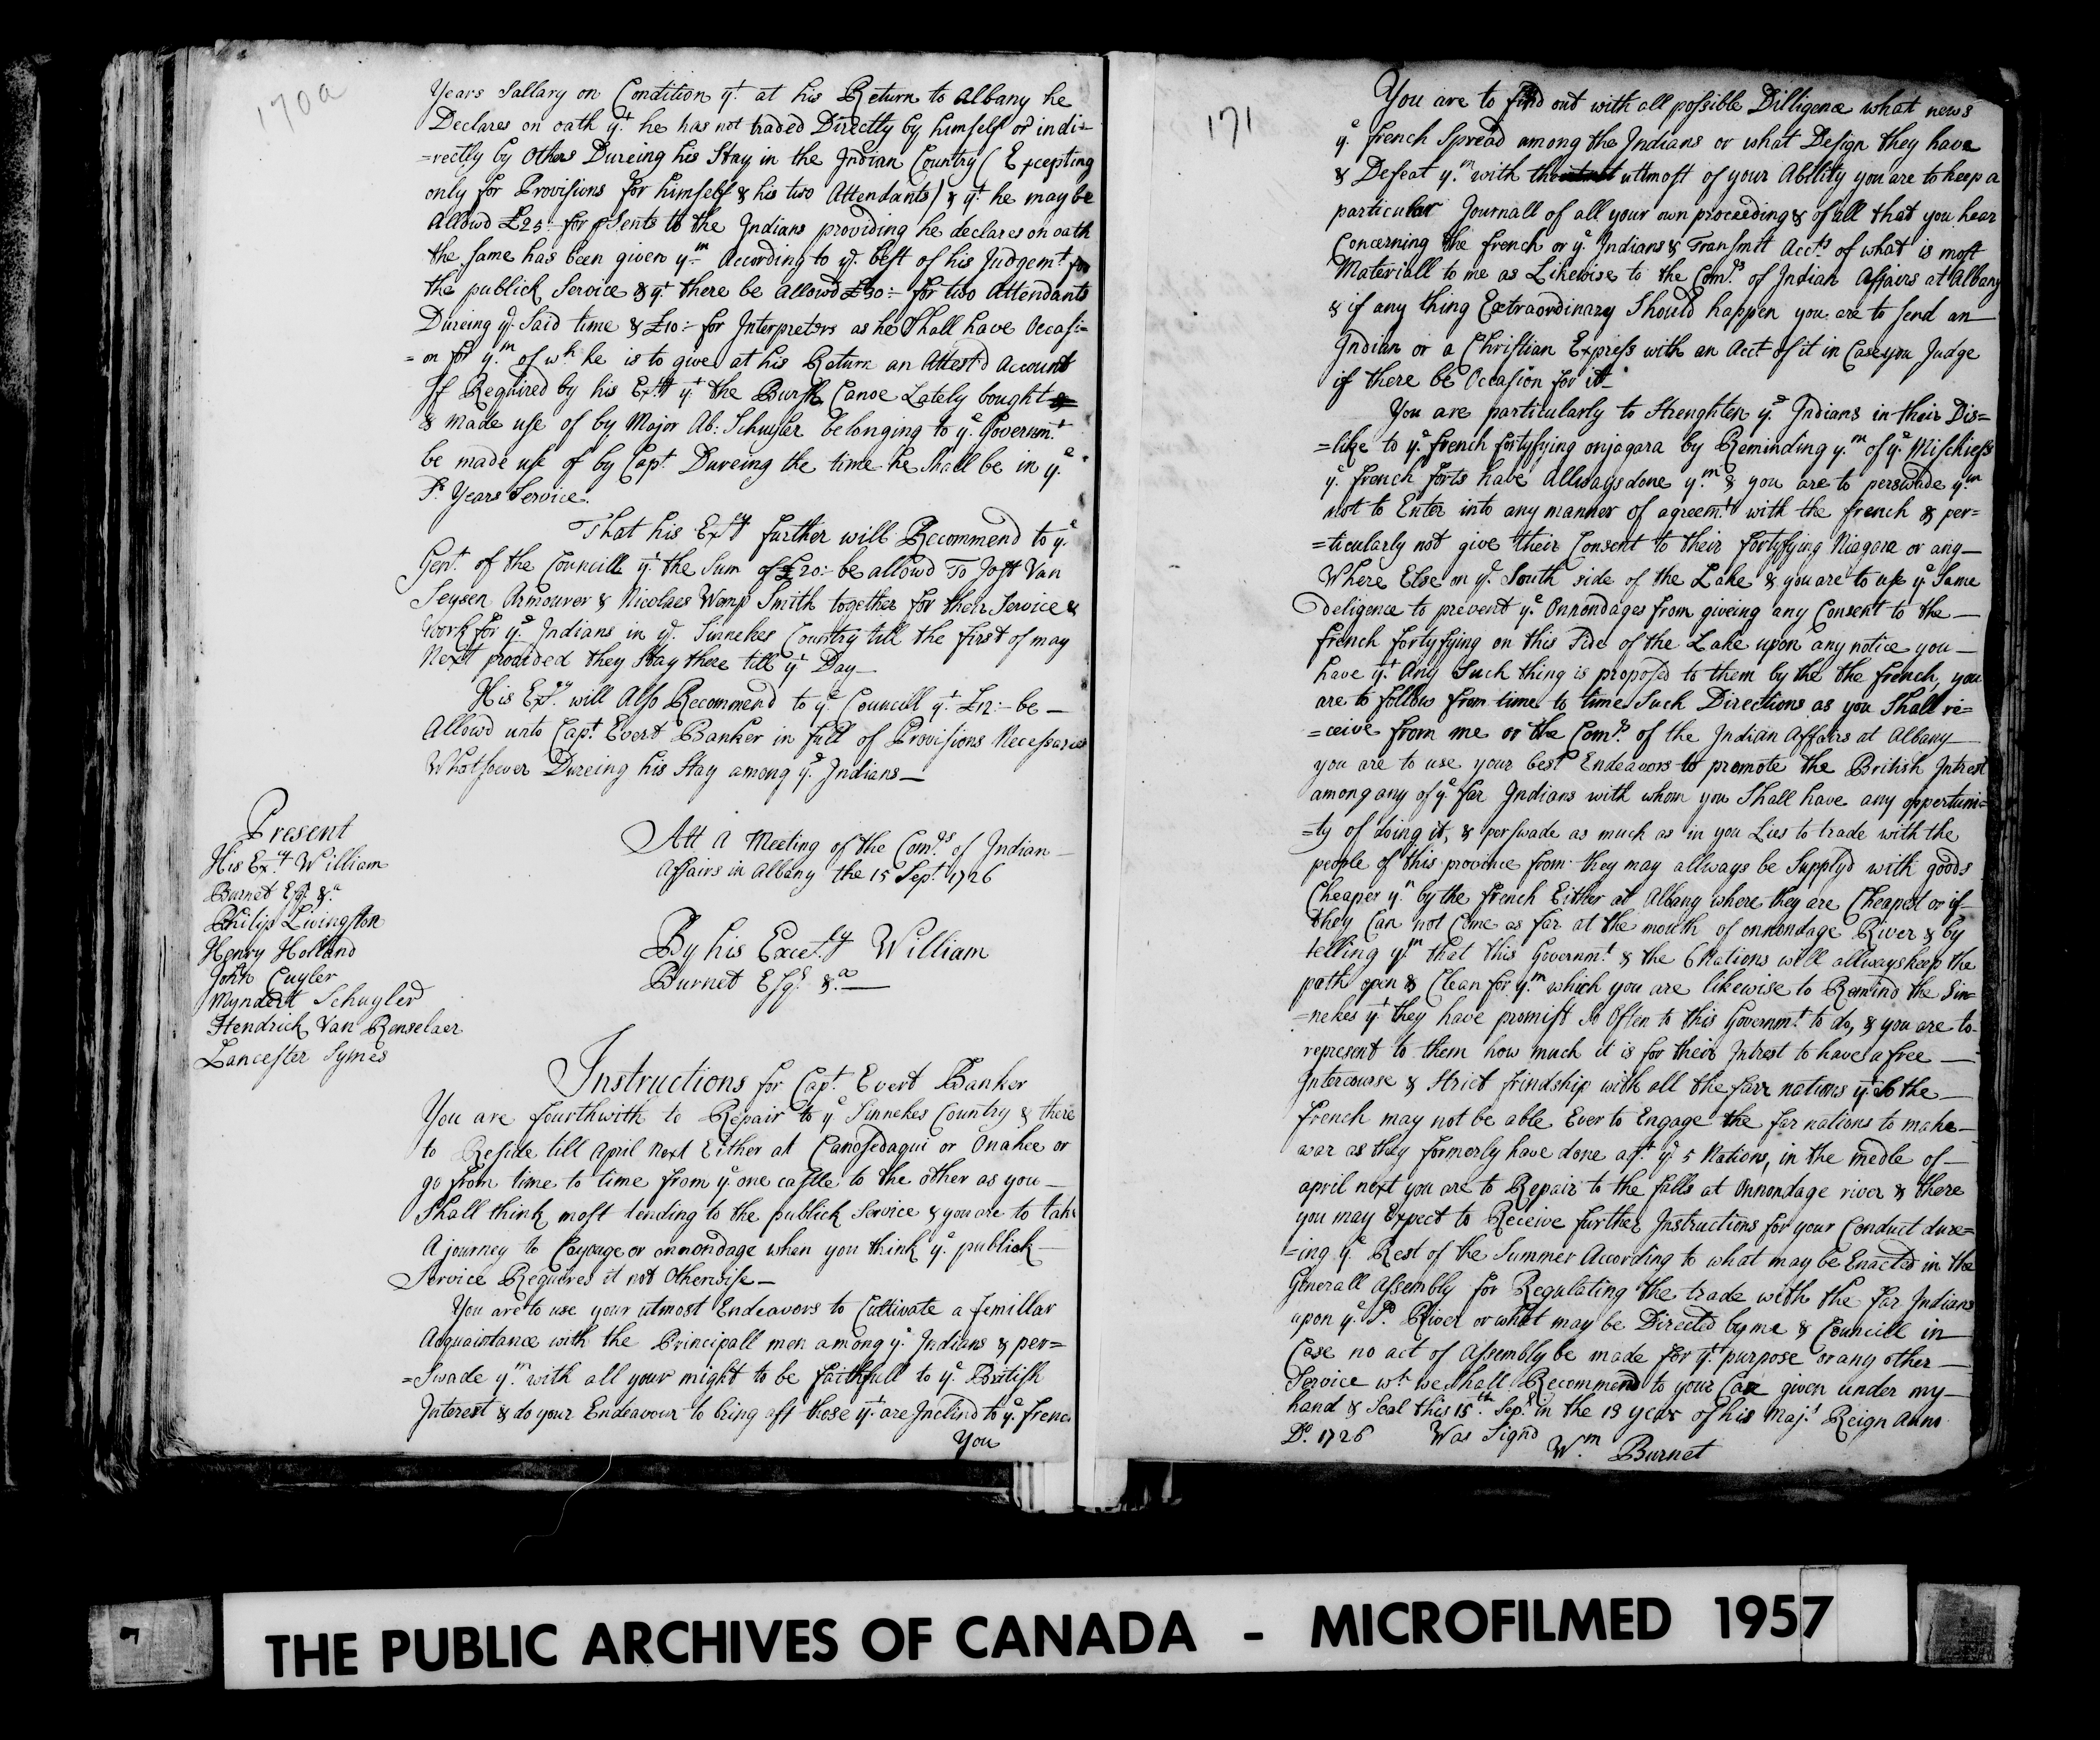 170a
Years Sallary on Condition yt. at his Return to Albany he
Declares on oath yt. he has not traded Directly by himself or indi=
=rectly by Others Dureing his Stay in the Indian Country (Excepting
only for Provisions for himself & his two Attendants) & yt. he may be
Allowd £25:- for psents to the Indians providing he declares on oath
the same has been given ym. According to ye. best of his Judgemt. for
the publick Service & yt. there be allowd £30:- for two Attendants
Dureing ye. Said time & £10:- for Interpreters as he Shall have Occasi=
=on for ym. of wh. he is to give at his Return an Attestd Account
If Required by his Excy. yt. the Burgh Canoe Lately bought &
& made use of by Major Ab: Schuyler belonging to ye. Governmt.
be made use of by Capt. Dureing the time he Shall be in ye.
Sd. Years Service.
That his Excy. further will Recommend to ye.
Gent. of the Councill yt. the Sum of £20:- be allowd To Jost Van
Seysen Armourer & Nicolaes Wemp Smith together for their Service &
work for ye. Indians in ye. Sinnekes Country till the first of may
Next provided they Stay there till yt. Day—
His Excy. will Also Recommend to ye. Councill yt. £12:- be—
Allowd unto Capt. Evert Banker in full of Provisions Necessaries
Whatsoever Dureing his Stay among ye. Indians—
Present
His Excy. William
Burnet Esq. &a.
Philip Livingston
Henry Holland
John Cuyler
Myndert Schuyler
Hendrick Van Renselaer
Lancester Symes
Att A Meeting of the Comrs. of Indian
Affairs in Albany the 15 Sept. 1726
By his Excelly. William
Burnet Esqr. &a.—
Instructions for Capt. Evert Banker
You are fourthwith to Repair to ye. Sinnekes Country & there
to Reside till April Next Either at Canosedaqui or Onahee or
go from time to time from ye. one castle to the other as you—
Shall think most tending to the publick Service & you are to take
A journey to Cayouge or onnondage when you think ye. publick—
Service Requires it not Otherwise—
You are to use your utmost Endeavors to Cultivate a femillar
Acquaintance with the Principall men among ye. Indians & per=
=Swade ym. with all your might to be faithfull to ye. British
Interest & do your Endeavour to bring off those yt. are Inclind to ye. french
You
171
You are to find out with all possible Dilligence what news
ye. french Spread among the Indians or what Design they have
& Defeat ym. with the uttmost of your Ability you are to keep a
particular Journall of all your own proceedings & of all that you hear
Concerning the french or ye. Indians & Transmitt Accts. of what is most
Materiall to me as Likewise to the Comrs. of Indian Affairs at Albany
& if any thing Extraordinary Should happen you are to send an—
Indian or a Christian Express with an Acct of it in Case you Judge
if there be Occasion for it—
You are particularly to Strenghten ye. Indians in their Dis=
=like to ye. french fortyfying onjagara by Reminding ym. of ye. Mischiefs
ye. french forts have Allways done ym. & you are to perswade ym.
not to Enter into any manner of agreemt. with the french & per=
=ticularly not give their Consent to their fortyfying Niagara or any—
Where Else on ye. South side of the Lake & you are to use ye. Same
deligence to prevent ye. Onnondages from giveing any Consent to the—
french fortyfying on this Side of the Lake upon any notice you—
have yt. Any Such thing is proposed to them by the the french, you
are to follow from time to time Such Directions as you Shall re=
=ceive from me or the Comrs. of the Indian Affairs at Albany—
you are to use your best Endeavors to promote the British Intrest
among any of ye. far Indians with whom you Shall have any oppertuni=
=ty of doing it, & perswade as much as in you Lies to trade with the
people of this province from they may allways be Supplyd with goods
Cheaper yn. by the french Either at Albany where they are Cheapest or if—
they Can not Come as far at the mouth of onnondage River & by
telling ym. that this Governmt. & the 6 Nations will allways keep the
path open & Clean for ym. which you are likewise to Remind the Sin=
=nekes yt. they have promist so Often to this Governmt. to do, & you are to
represent to them how much it is for their Intrest to have a free—
Intercourse & Strict frindship with all the farr nations yt. So the—
french may not be able Ever to Engage the far nations to make—
war as they formerly have done agt. ye. 5 Nations, in the medle of—
april next you are to Repair to the falls at Onnondage river & there
you may Expect to Receive further Instructions for your Conduct dure=
=ing ye. Rest of the Summer According to what may be Enacted in the
Generall Assembly for Regulating the trade with the far Indians
upon ye. Sd. River or what may be Directed by me & Councill in—
Case no act of Assembly be made for yt. purpose or any other—
Service wh. we shall Recommend to your Care given under my—
hand & Seal this 15th. Sepr. in the 13 year of his Majs. Reign Anno
Do. 1726 Was Signd
Wm. Burnet
THE PUBLIC ARCHIVES OF CANADA - MICROFILMED 1957